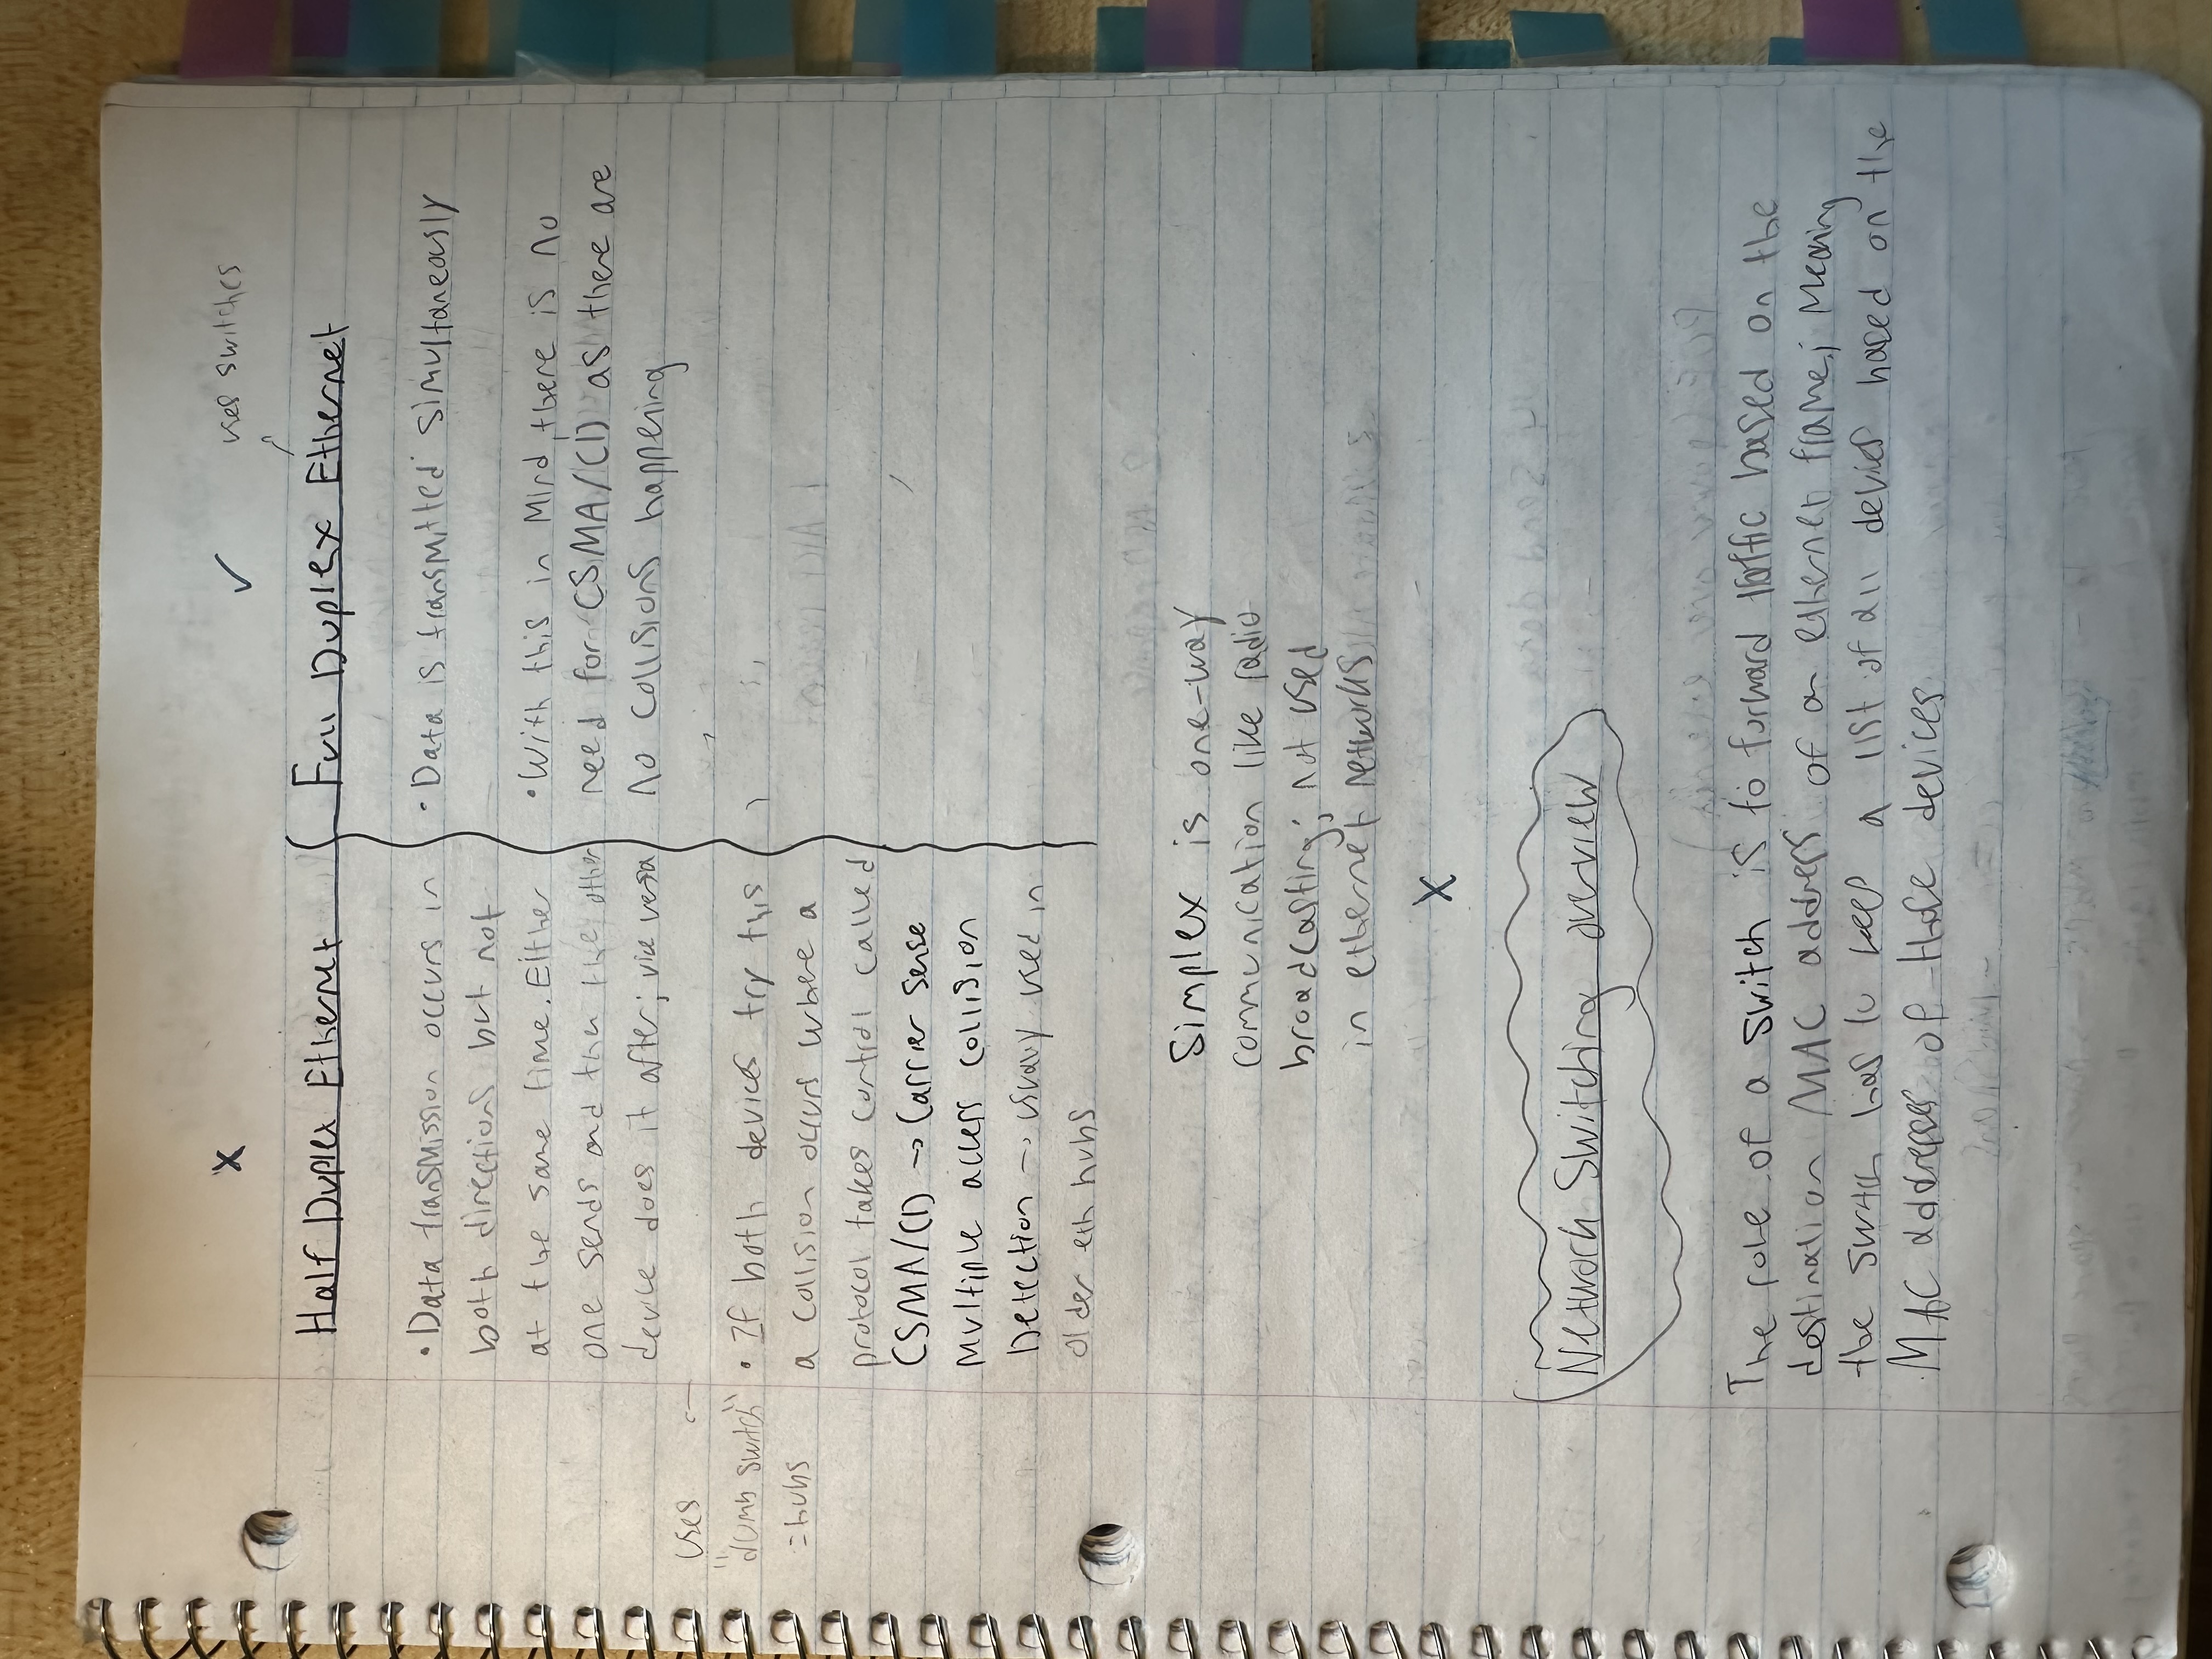 X
✓
uses switches
Half Duplex Ethernet
• Data transmission occurs in
both directions but not
at the same time. Either
one sends and then the other
device does it after; vice versa
uses ←
"dumb switch"
= hubs
• If both devices try this
a collision occurs where a
protocol takes control called
CSMA/CD → Carrier Sense
Multiple access collision
Detection → usualy used in
older eth hubs
Full Duplex Ethernet
• Data is transmitted simultaneously
• With this in Mind, there is no
need for CSMA/CD as there are
no collisions happening
Simplex is one-way
communication like radio
broadcasting; not used
in ethernet networks
X
Network Switching overview
The role of a switch is to forward traffic based on the
destination MAC address of an ethernet frame; Meaning
the switch has to keep a list of all devices based on the
MAC addresses of those devices